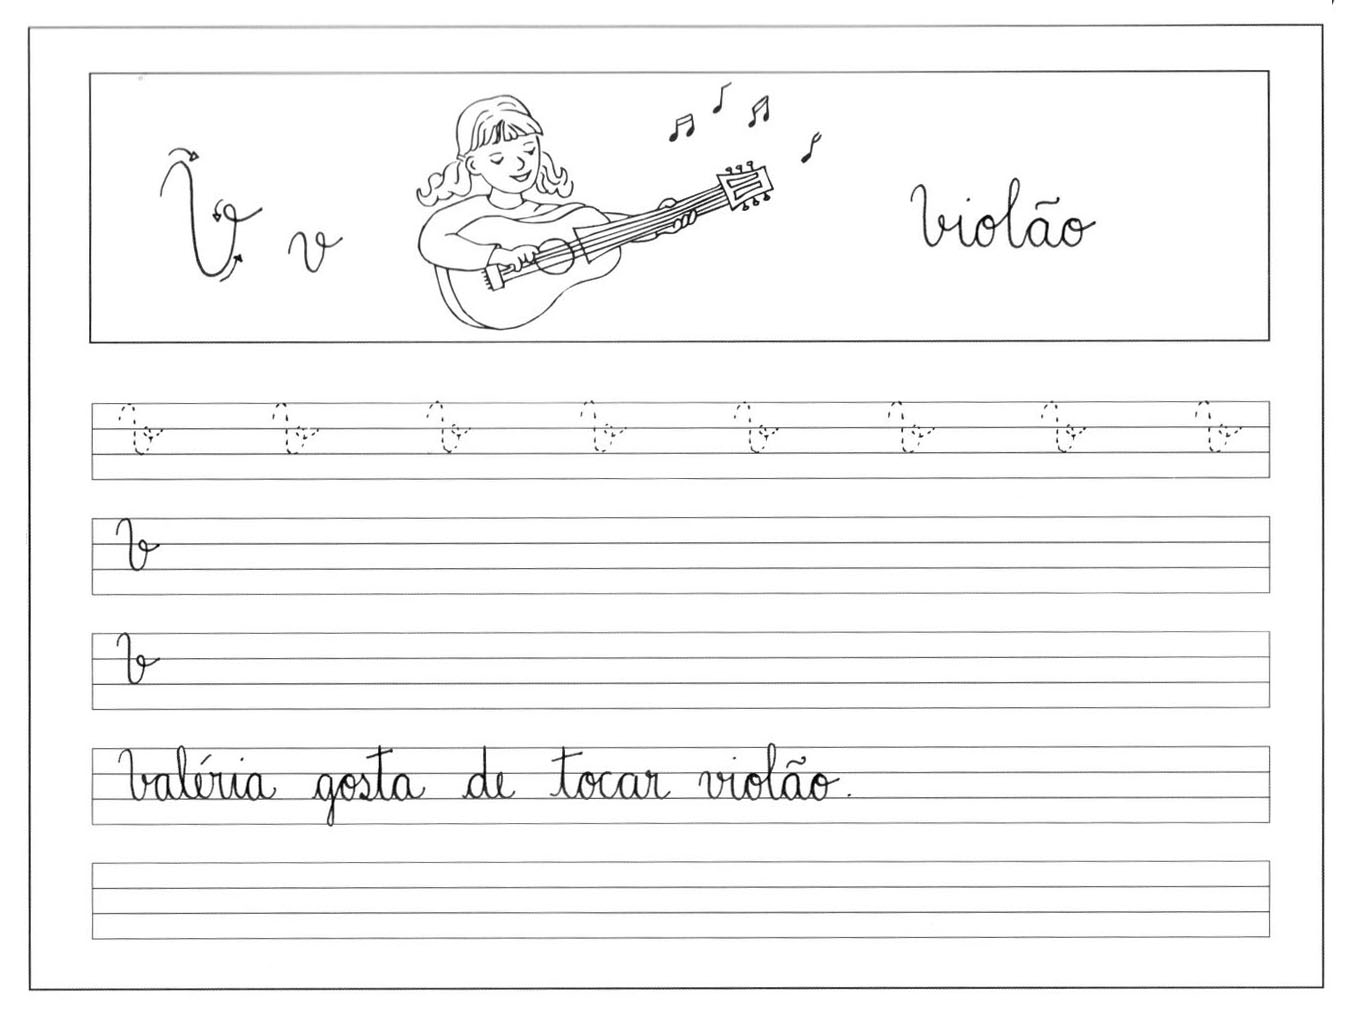 V v Violão
V V V V V V V V
V
V
Valéria gosta de tocar violão.